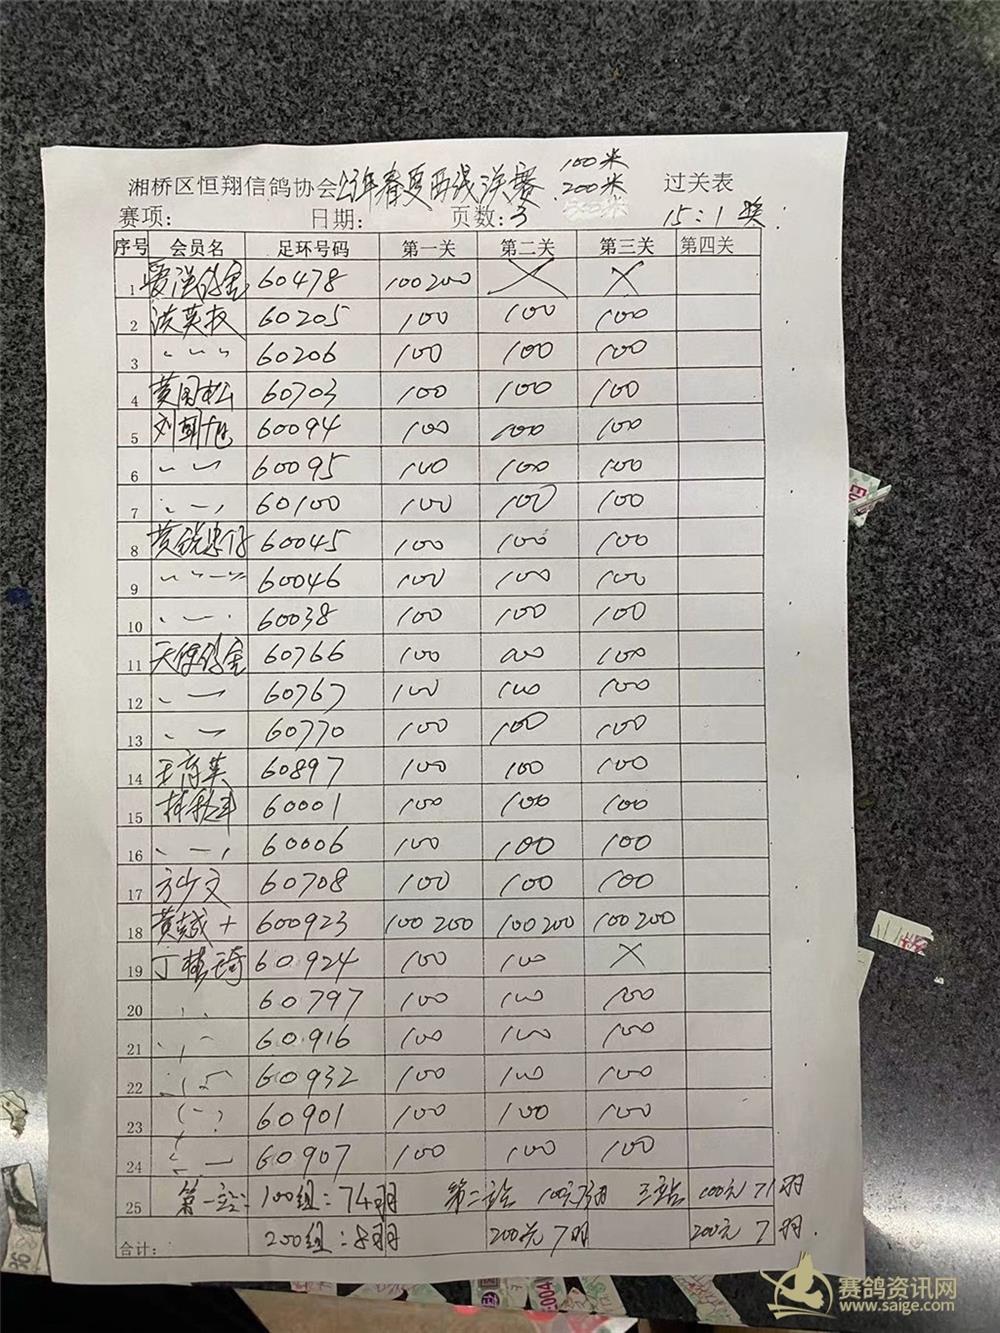 湘桥区恒翔信鸽协会 春夏西线决赛 100米 过关表
200米
赛项: 日期: 页数:3 15:1 奖
序号 会员名 足环号码 第一关 第二关 第三关 第四关
1 爱洋鸽舍 60478 100 200 X X
2 洪英权 60205 100 100 100
3 〃 〃 〃 60206 100 100 100
4 黄国松 60703 100 100 100
5 刘朝旭 60094 100 100 100
6 〃 〃 60095 100 100 100
7 〃 〃 60100 100 100 100
8 黄锐忠 60045 100 100 100
9 〃 〃 〃 60046 100 100 100
10 〃 〃 60038 100 100 100
11 天使鸽舍 60766 100 100 100
12 〃 〃 60767 100 100 100
13 〃 〃 60770 100 100 100
14 王育英 60897 100 100 100
15 林 60001 100 100 100
16 〃 〃 60006 100 100 100
17 方少文 60708 100 100 100
18 黄斌 + 600923 100 200 100 200 100 200
19 丁 琦 60924 100 100 X
20 〃 〃 60797 100 100 100
21 〃 〃 60916 100 100 100
22 〃 〃 60932 100 100 100
23 〃 〃 60901 100 100 100
24 〃 〃 60907 100 100 100
25 第一站: 100组:74羽 第二站 100元 羽 三站 100元 71羽
合计: 200组:8羽 200元 7羽 200元 7羽.
赛鸽资讯网
www.saige.com